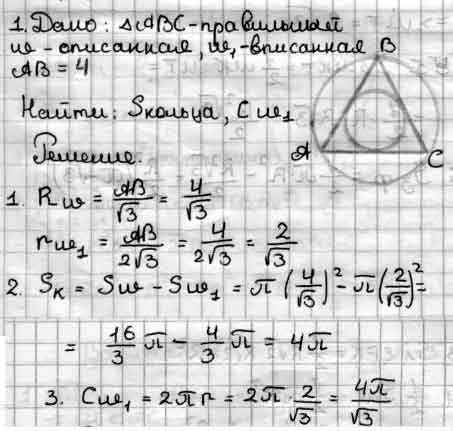 1. Дано: △ABC - правильный
ω - описанная, ω₁ - вписанная
B
AB = 4
Найти: Sкольца, Cω₁
A
C
Решение:
1. Rω = AB/√3 = 4/√3
rω₁ = AB/2√3 = 4/2√3 = 2/√3
2. Sк = Sω - Sω₁ = π(4/√3)² - π(2/√3)² =
= 16/3 π - 4/3 π = 4π
3. Cω₁ = 2πr = 2π · 2/√3 = 4π/√3